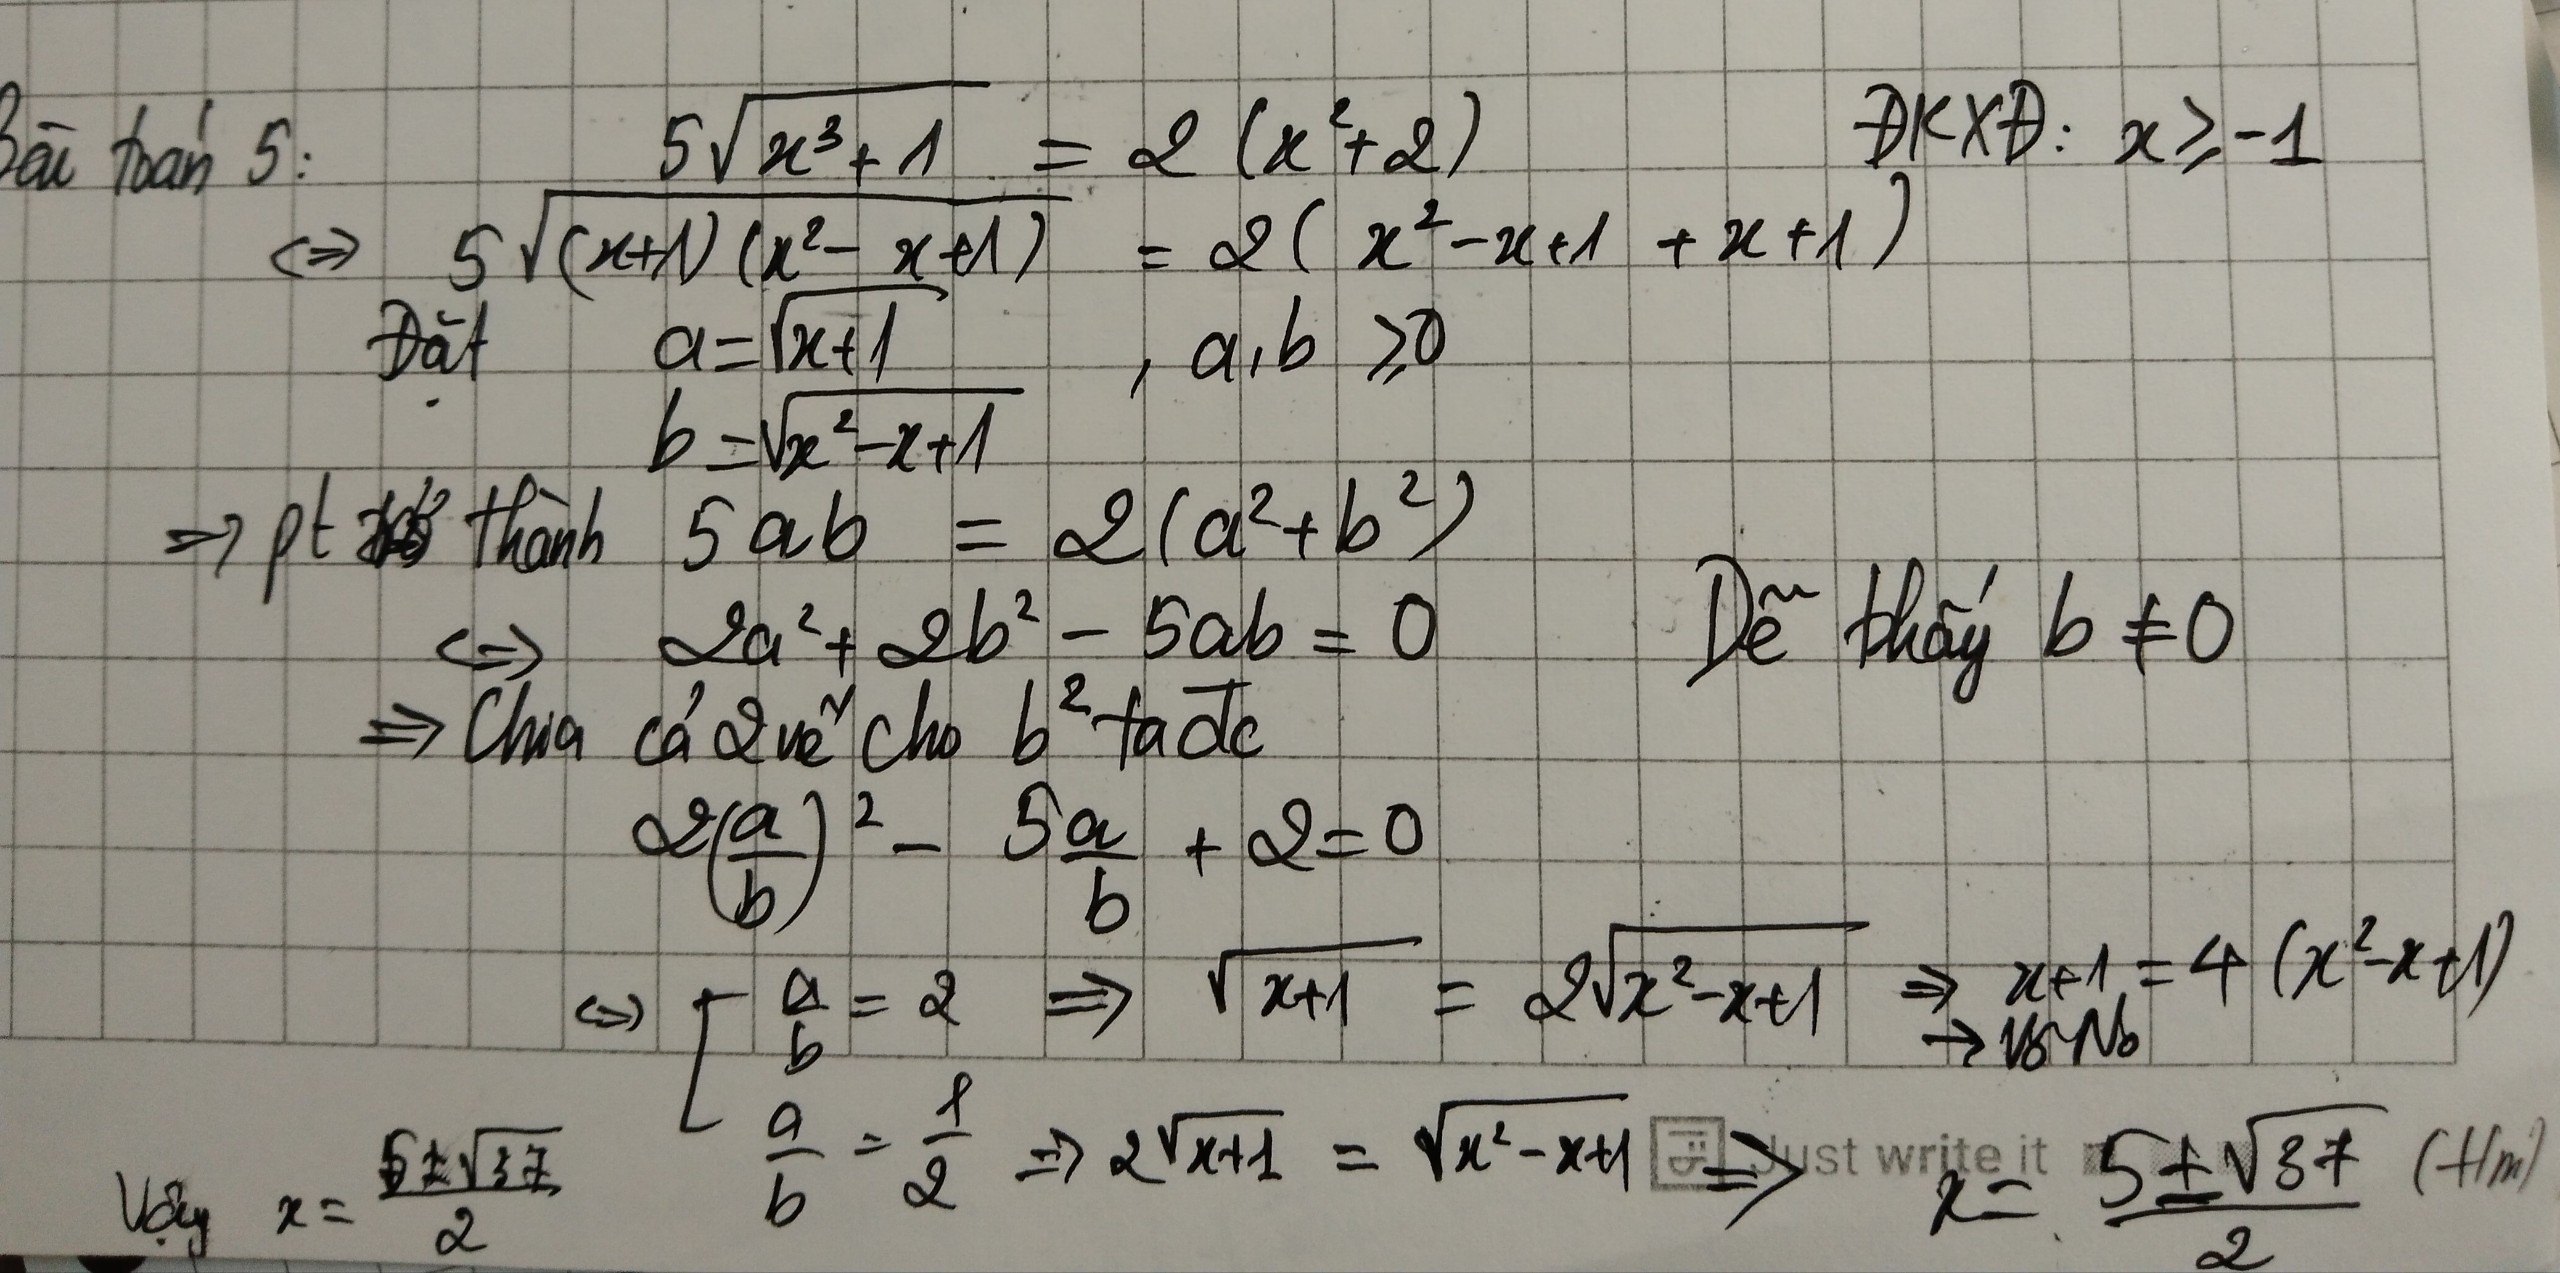 Bài toán 5: 5√(x³+1) = 2(x²+2) ĐKXĐ: x ≥ -1
⇔ 5√((x+1)(x²-x+1)) = 2(x²-x+1 + x+1)
Đặt a = √(x+1) , a,b ≥ 0
b = √(x²-x+1)
⇒ pt trở thành 5ab = 2(a²+b²)
⇔ 2a² + 2b² - 5ab = 0 Dễ thấy b ≠ 0
⇒ Chia cả 2 vế cho b² ta đc
2(a/b)² - 5a/b + 2 = 0
⇔ [ a/b = 2 ⇒ √(x+1) = 2√(x²-x+1) ⇒ x+1 = 4(x²-x+1)
→ Vô No
a/b = 1/2 ⇒ 2√(x+1) = √(x²-x+1) ⇒ x = (5±√37)/2 (t/m)
Just write it
Vậy x = (5±√37)/2